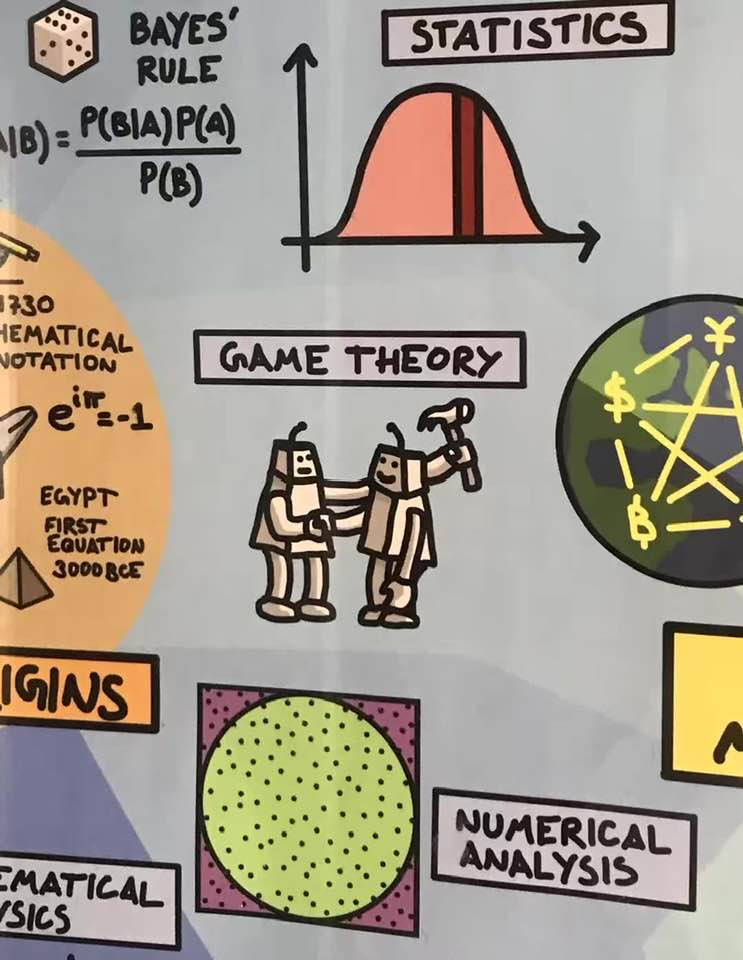 BAYES'
RULE
STATISTICS
A|B) = P(B|A)P(A)
P(B)
1730
HEMATICAL
NOTATION
e^iπ=-1
EGYPT
FIRST
EQUATION
3000BCE
GAME THEORY
¥
$
₿
IGINS
NUMERICAL
ANALYSIS
EMATICAL
YSICS